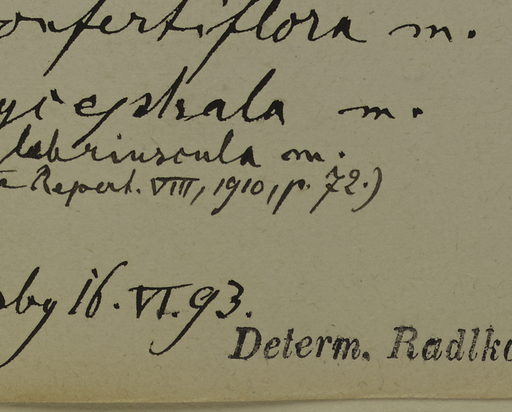 onfertiflora m.
ycephala m.
labriuscula m.
Repert. VIII, 1910, p. 72.)
by 16. VI. 93.
Determ. Radlko